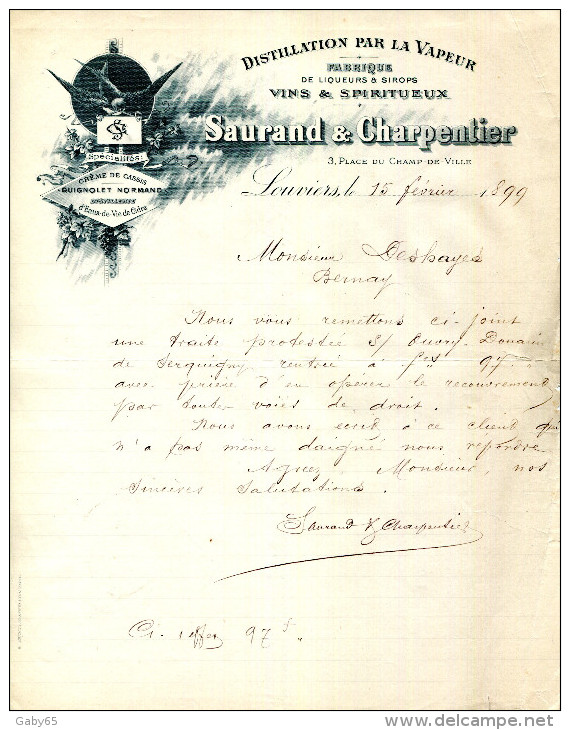 DISTILLATION PAR LA VAPEUR
FABRIQUE
DE LIQUEURS & SIROPS
VINS & SPIRITUEUX
Saurand & Charpentier
3, PLACE DU CHAMP-DE-VILLE
Spécialités:
CRÈME DE CASSIS
GUIGNOLET NORMAND
DISTILLERIE
d'Eaux-de-Vie de Cidre
Louviers, le 15 février 1899
Monsieur Deshayes
Bernay
Nous vous remettons ci-joint
une traite protestée s/ Ouvry-Douain
de Serquigny rentrée à f 97 "
avec prière d'en opérer le recouvrement
par toutes voies de droit.
Nous avons écrit à ce client qui
n'a pas même daigné nous répondre
Agréez, Monsieur, nos
sincères salutations.
Saurand & Charpentier
Ci-1 effet 97 f "
Gaby65
www.delcampe.net